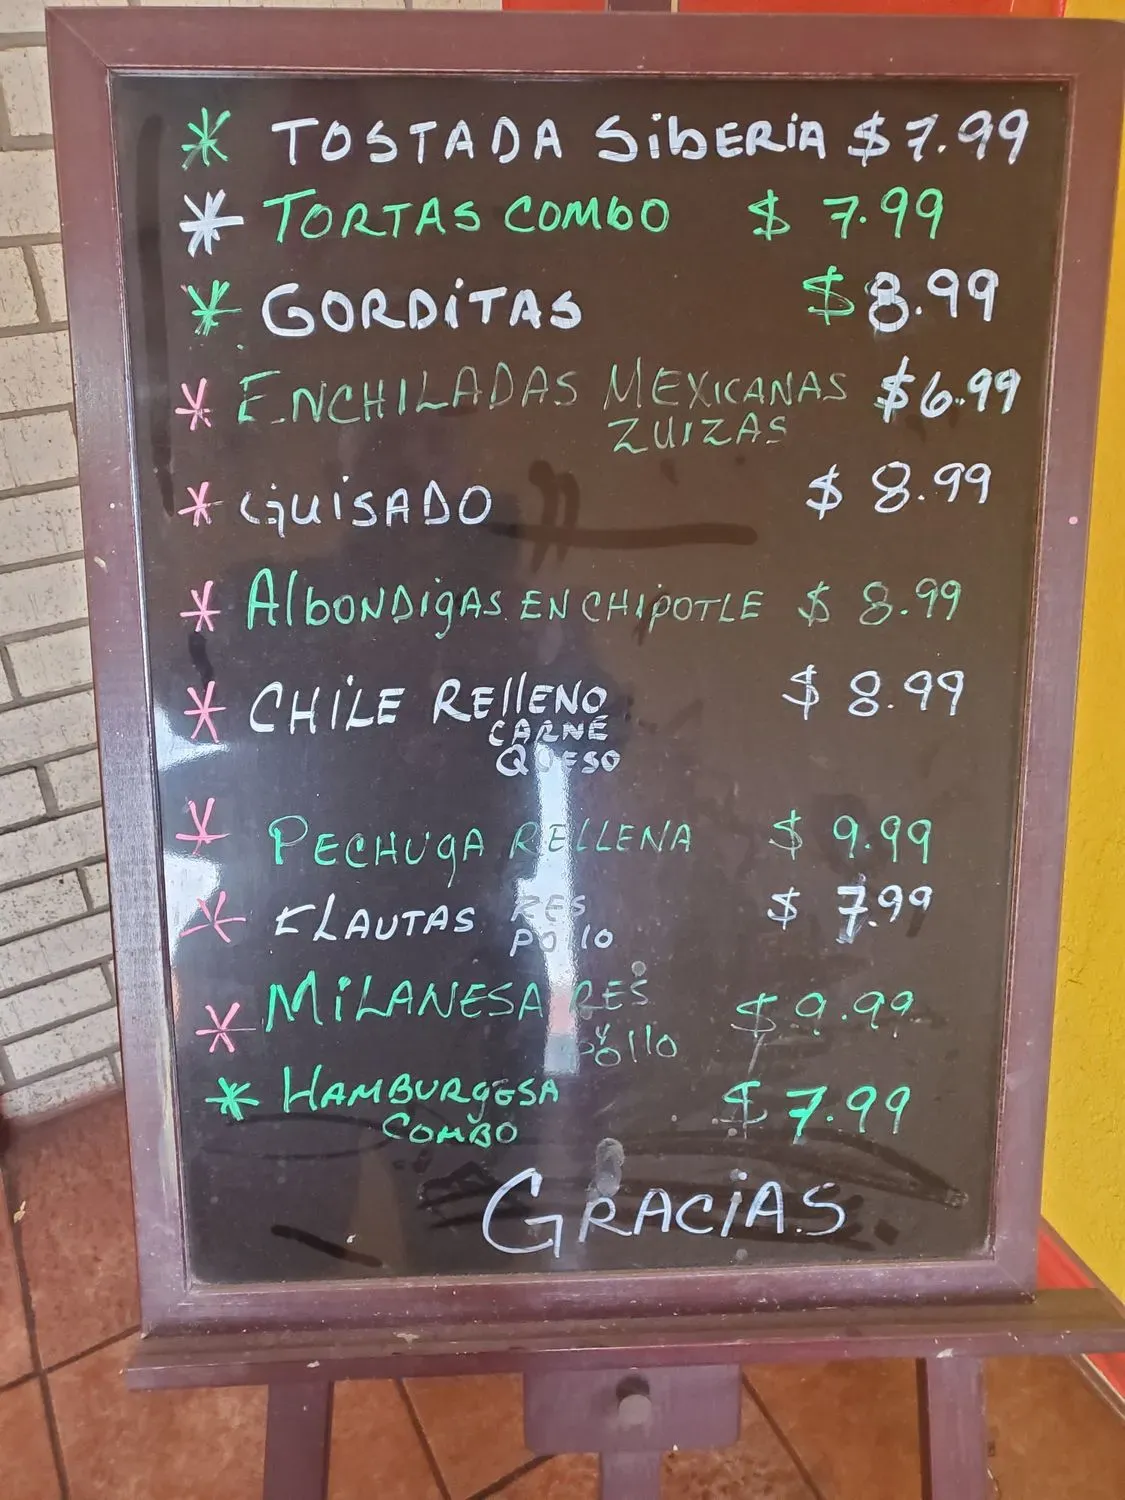 * TOSTADA SibERiA $7.99
* TORTAS COMbO $ 7.99
* GORDiTAS $8.99
* ENCHILADAS MEXICANAS $6.99
ZUIZAS
* GUiSADO $ 8.99
* AlbONDigAS EN CHiPOTLE $ 8.99
* CHiLE REllENO $ 8.99
CARNE
QUESO
* PECHUgA RELLENA $ 9.99
* FLAUTAS RES $ 7.99
POllO
* MiLANESA RES $ 9.99
Y
POllO
* HAMBURgESA $ 7.99
COMBO
GRACiAS